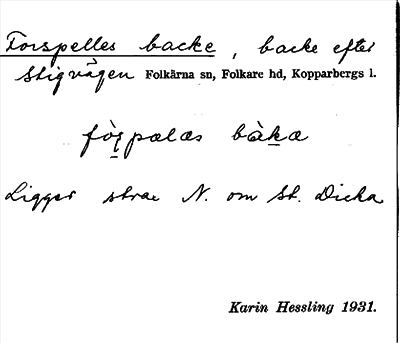 Forspelles backe, backe efter
Stigvägen Folkärna sn, Folkare hd, Kopparbergs l.
fòrpælæs bàka
Ligger strax N. om St. Dicka
Karin Hessling 1931.